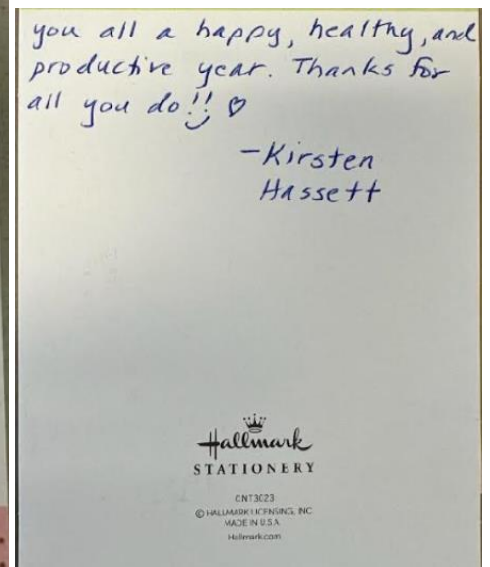 you all a happy, healthy, and
productive year. Thanks for
all you do!! ♡
-Kirsten
Hassett
Hallmark
STATIONERY
CNT3023
© HALLMARK LICENSING, INC
MADE IN U.S.A.
Hallmark.com